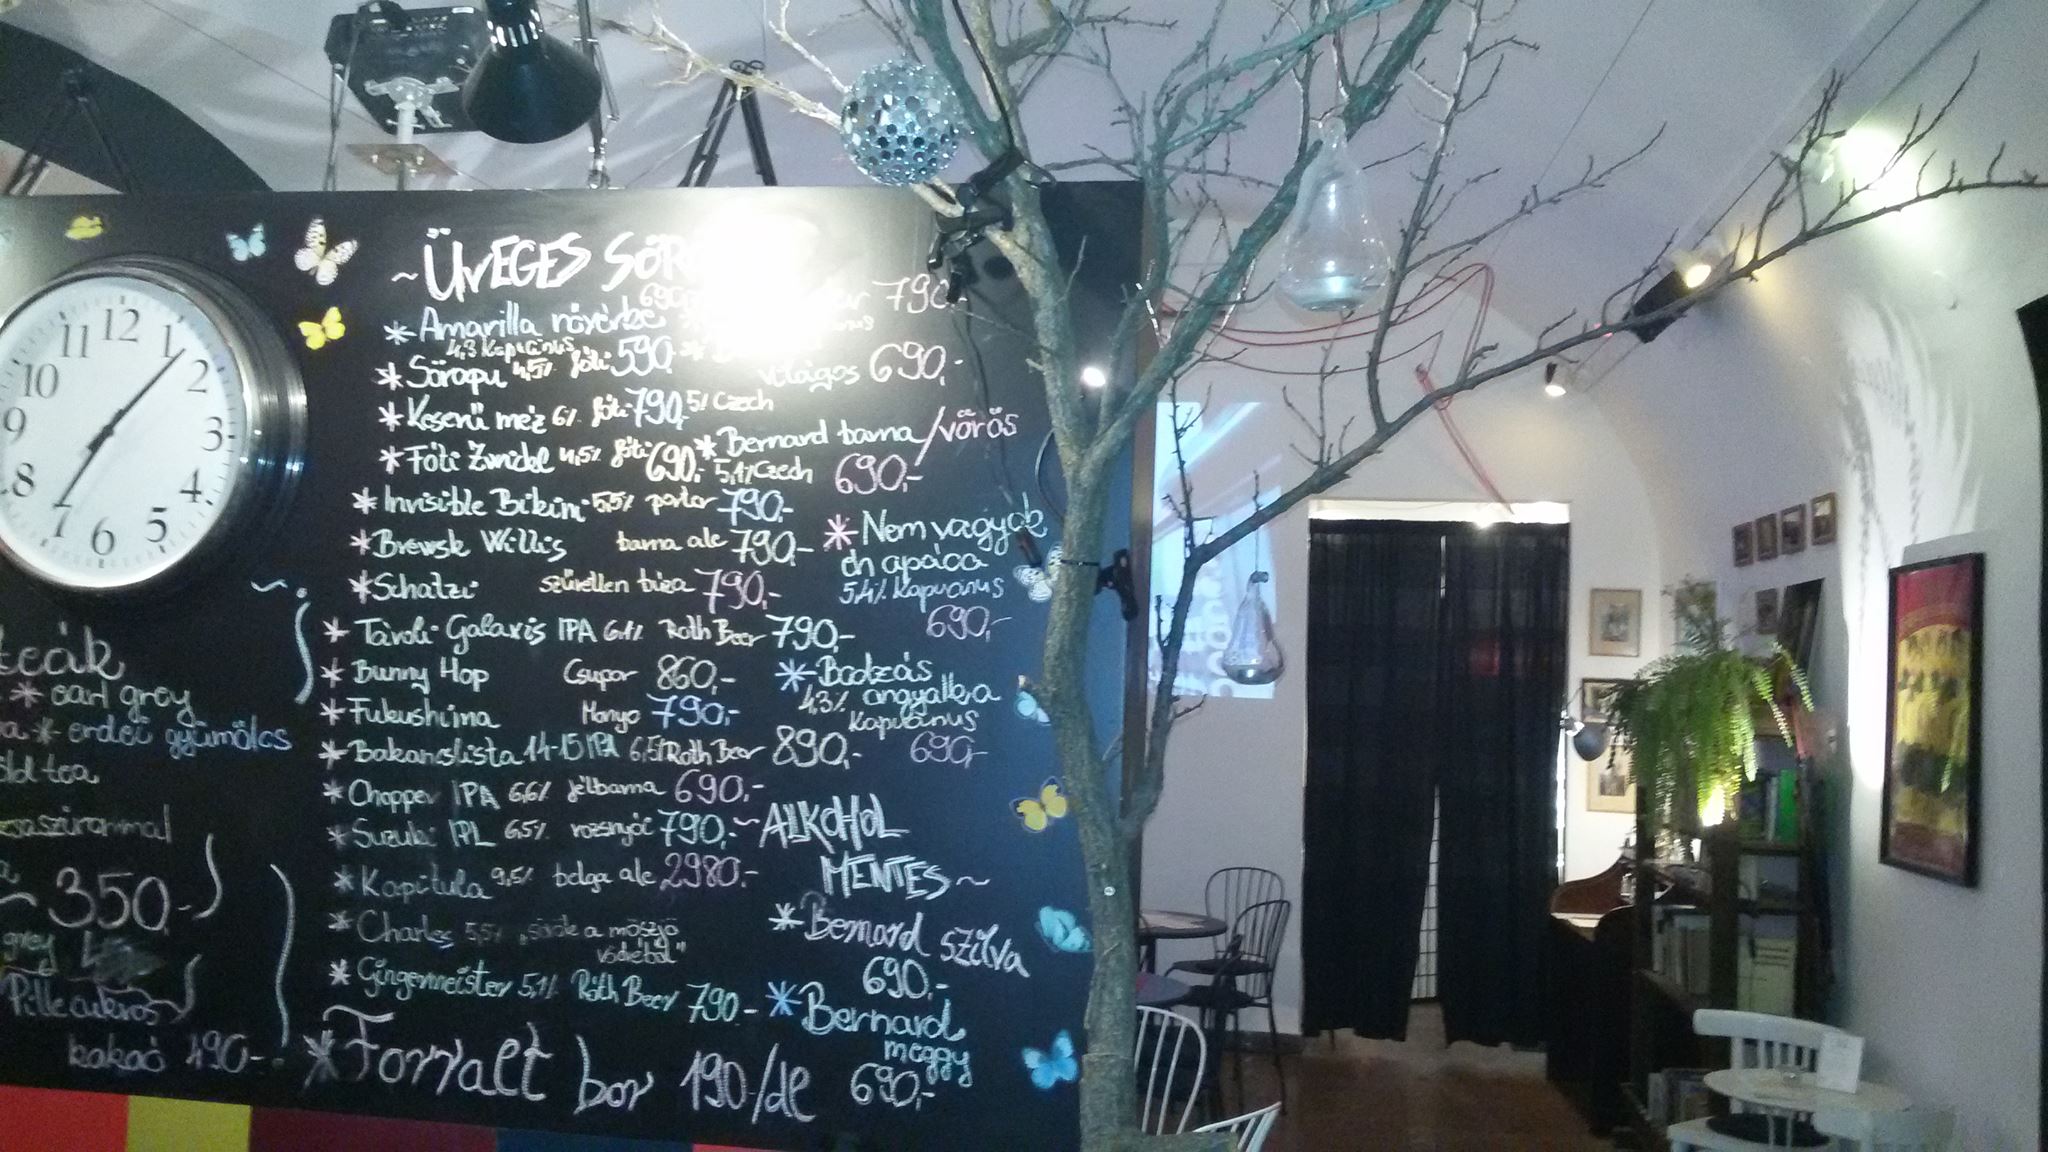 12
1
2
3
4
5
6
7
8
9
10
11
~ ÜVEGES
* Amarilla nővérke 690,-
4,3 Kapucinus
* Söragu 4,5% fóti 590,-
* Keserű méz 6% fóti 790,-
* Fóti Zwickl 4,5% fóti 690,-
* Invisible Bikini 5,5% porter 790,-
* Brewsk Willis barna ale 790,-
* Schatzi szűretlen búza 790,-
* Távoli Galaxis IPA 6,1% Roth Beer 790,-
* Bunny Hop Csupor 860,-
* Fukushima Monyo 790,-
* Bakancslista 14-15 IPA 6,5% Roth Beer 890,-
* Chopper IPA 6,6% félbarna 690,-
* Suzuki IPL 6,5% rozsnyói 790,-
* Kapitula 9,5% belga ale 2980,-
* Charles 5,5% „sörök a mószjő
vödréből"
* Gingermeister 5,1% Róth Beer 790,-
* Forralt bor 190/dl
790,-
világos 690,-
5% Czech
* Bernard barna/vörös
5,1% Czech 690,-
* Nem vagyok
én apáca
5,4% Kapucinus
690,-
* Bodzás
4,3% angyalka
Kapucinus
690,-
~ ALKOHOL
MENTES ~
* Bernard szilva
690,-
* Bernard
meggy
690,-
teák
* earl grey
* erdei gyümölcs
tea
350,-
grey
Pillecukros
kakaó 490,-